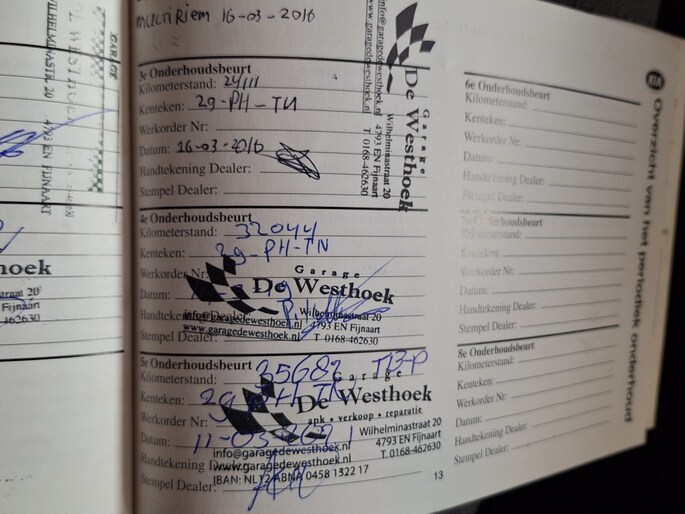 GARAGE
WILHELMINASTR. 20 4793 EN FIJNAART
Westhoek
straat 20
Fijnaart
-462630
multiriem 16-03-2016
3e Onderhoudsbeurt
Kilometerstand: 24111
Kenteken: 29-PH-TN
Werkorder Nr:
Datum: 16-03-2016
Handtekening Dealer:
Stempel Dealer:
Garage
De Westhoek
Wilhelminastraat 20
4793 EN Fijnaart
T 0168-462630
info@garagedewesthoek.nl
www.garagedewesthoek.nl
4e Onderhoudsbeurt
Kilometerstand: 32044
Kenteken: 29-PH-TN
Werkorder Nr:
Datum:
Handtekening Dealer:
Stempel Dealer:
Garage
De Westhoek
Wilhelminastraat 20
info@garagedewesthoek.nl 4793 EN Fijnaart
www.garagedewesthoek.nl T 0168-462630
5e Onderhoudsbeurt
Kilometerstand: 35682
Kenteken: 29 PH TN
Werkorder Nr:
Datum: 11-05-
Handtekening Dealer:
Stempel Dealer:
Garage
De Westhoek
apk • verkoop • reparatie
Wilhelminastraat 20
info@garagedewesthoek.nl 4793 EN Fijnaart
www.garagedewesthoek.nl T. 0168-462630
IBAN: NL12 ABNA 0458 1322 17
6e Onderhoudsbeurt
Kilometerstand:
Kenteken:
Werkorder Nr:
Datum:
Handtekening Dealer:
Stempel Dealer:
Onderhoudsbeurt
Kilometerstand:
Kenteken:
Werkorder Nr:
Datum:
Handtekening Dealer:
Stempel Dealer:
8e Onderhoudsbeurt
Kilometerstand:
Kenteken:
Werkorder Nr:
Datum:
Handtekening Dealer:
Stempel Dealer:
Overzicht van het periodiek onderhoud
13